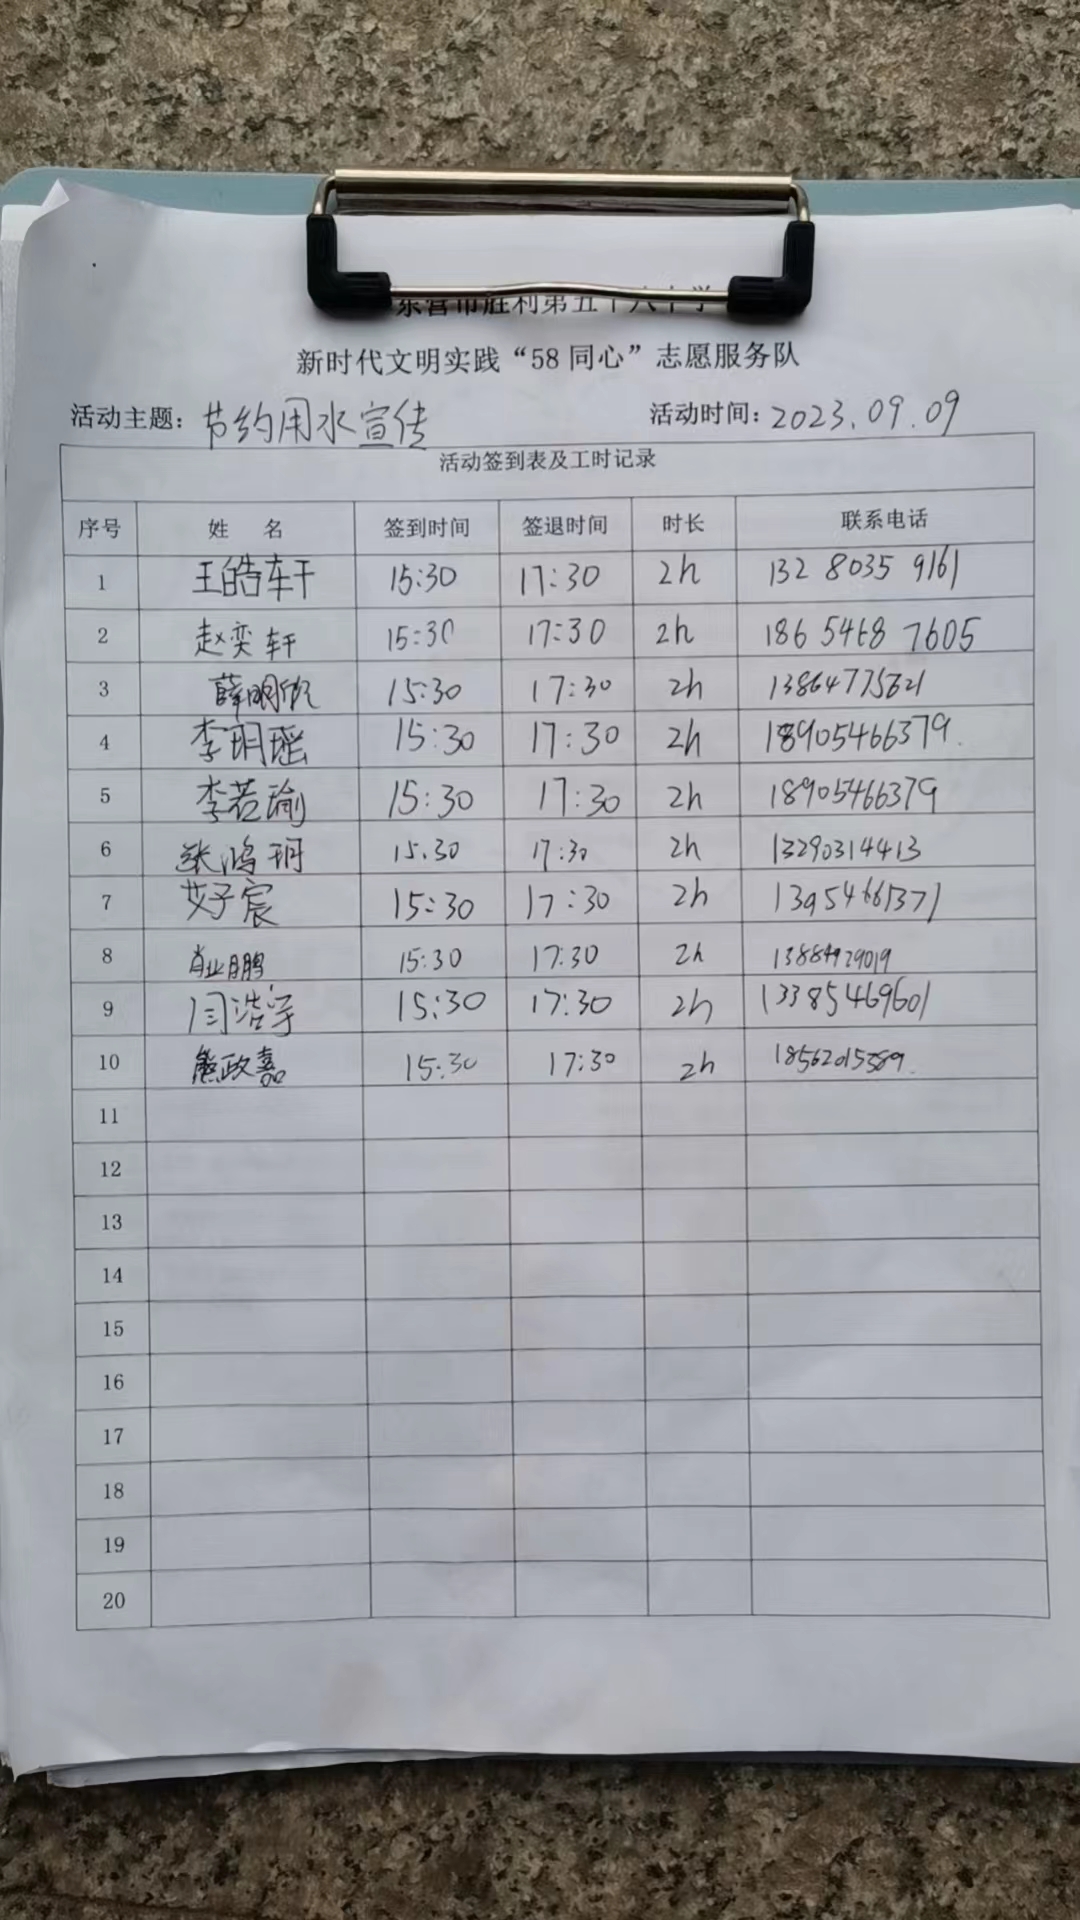 东营市胜利第五十八中学
新时代文明实践“58同心”志愿服务队
活动主题：节约用水宣传 活动时间：2023.09.09
活动签到表及工时记录
序号 姓 名 签到时间 签退时间 时长 联系电话
1 王皓轩 15:30 17:30 2h 132 8035 9161
2 赵奕轩 15:30 17:30 2h 186 5468 7605
3 薛明欣 15:30 17:30 2h 13864775621
4 李玥瑶 15:30 17:30 2h 18905466379.
5 李若瑜 15:30 17:30 2h 18905466379
6 张鸿玥 15.30 17:30 2h 13290314413
7 艾子宸 15:30 17:30 2h 13954661371
8 肖业鹏 15:30 17:30 2h 13884929019
9 闫浩宇 15:30 17:30 2h 13385469601
10 熊政嘉 15:30 17:30 2h
11
12
13
14
15
16
17
18
19
20